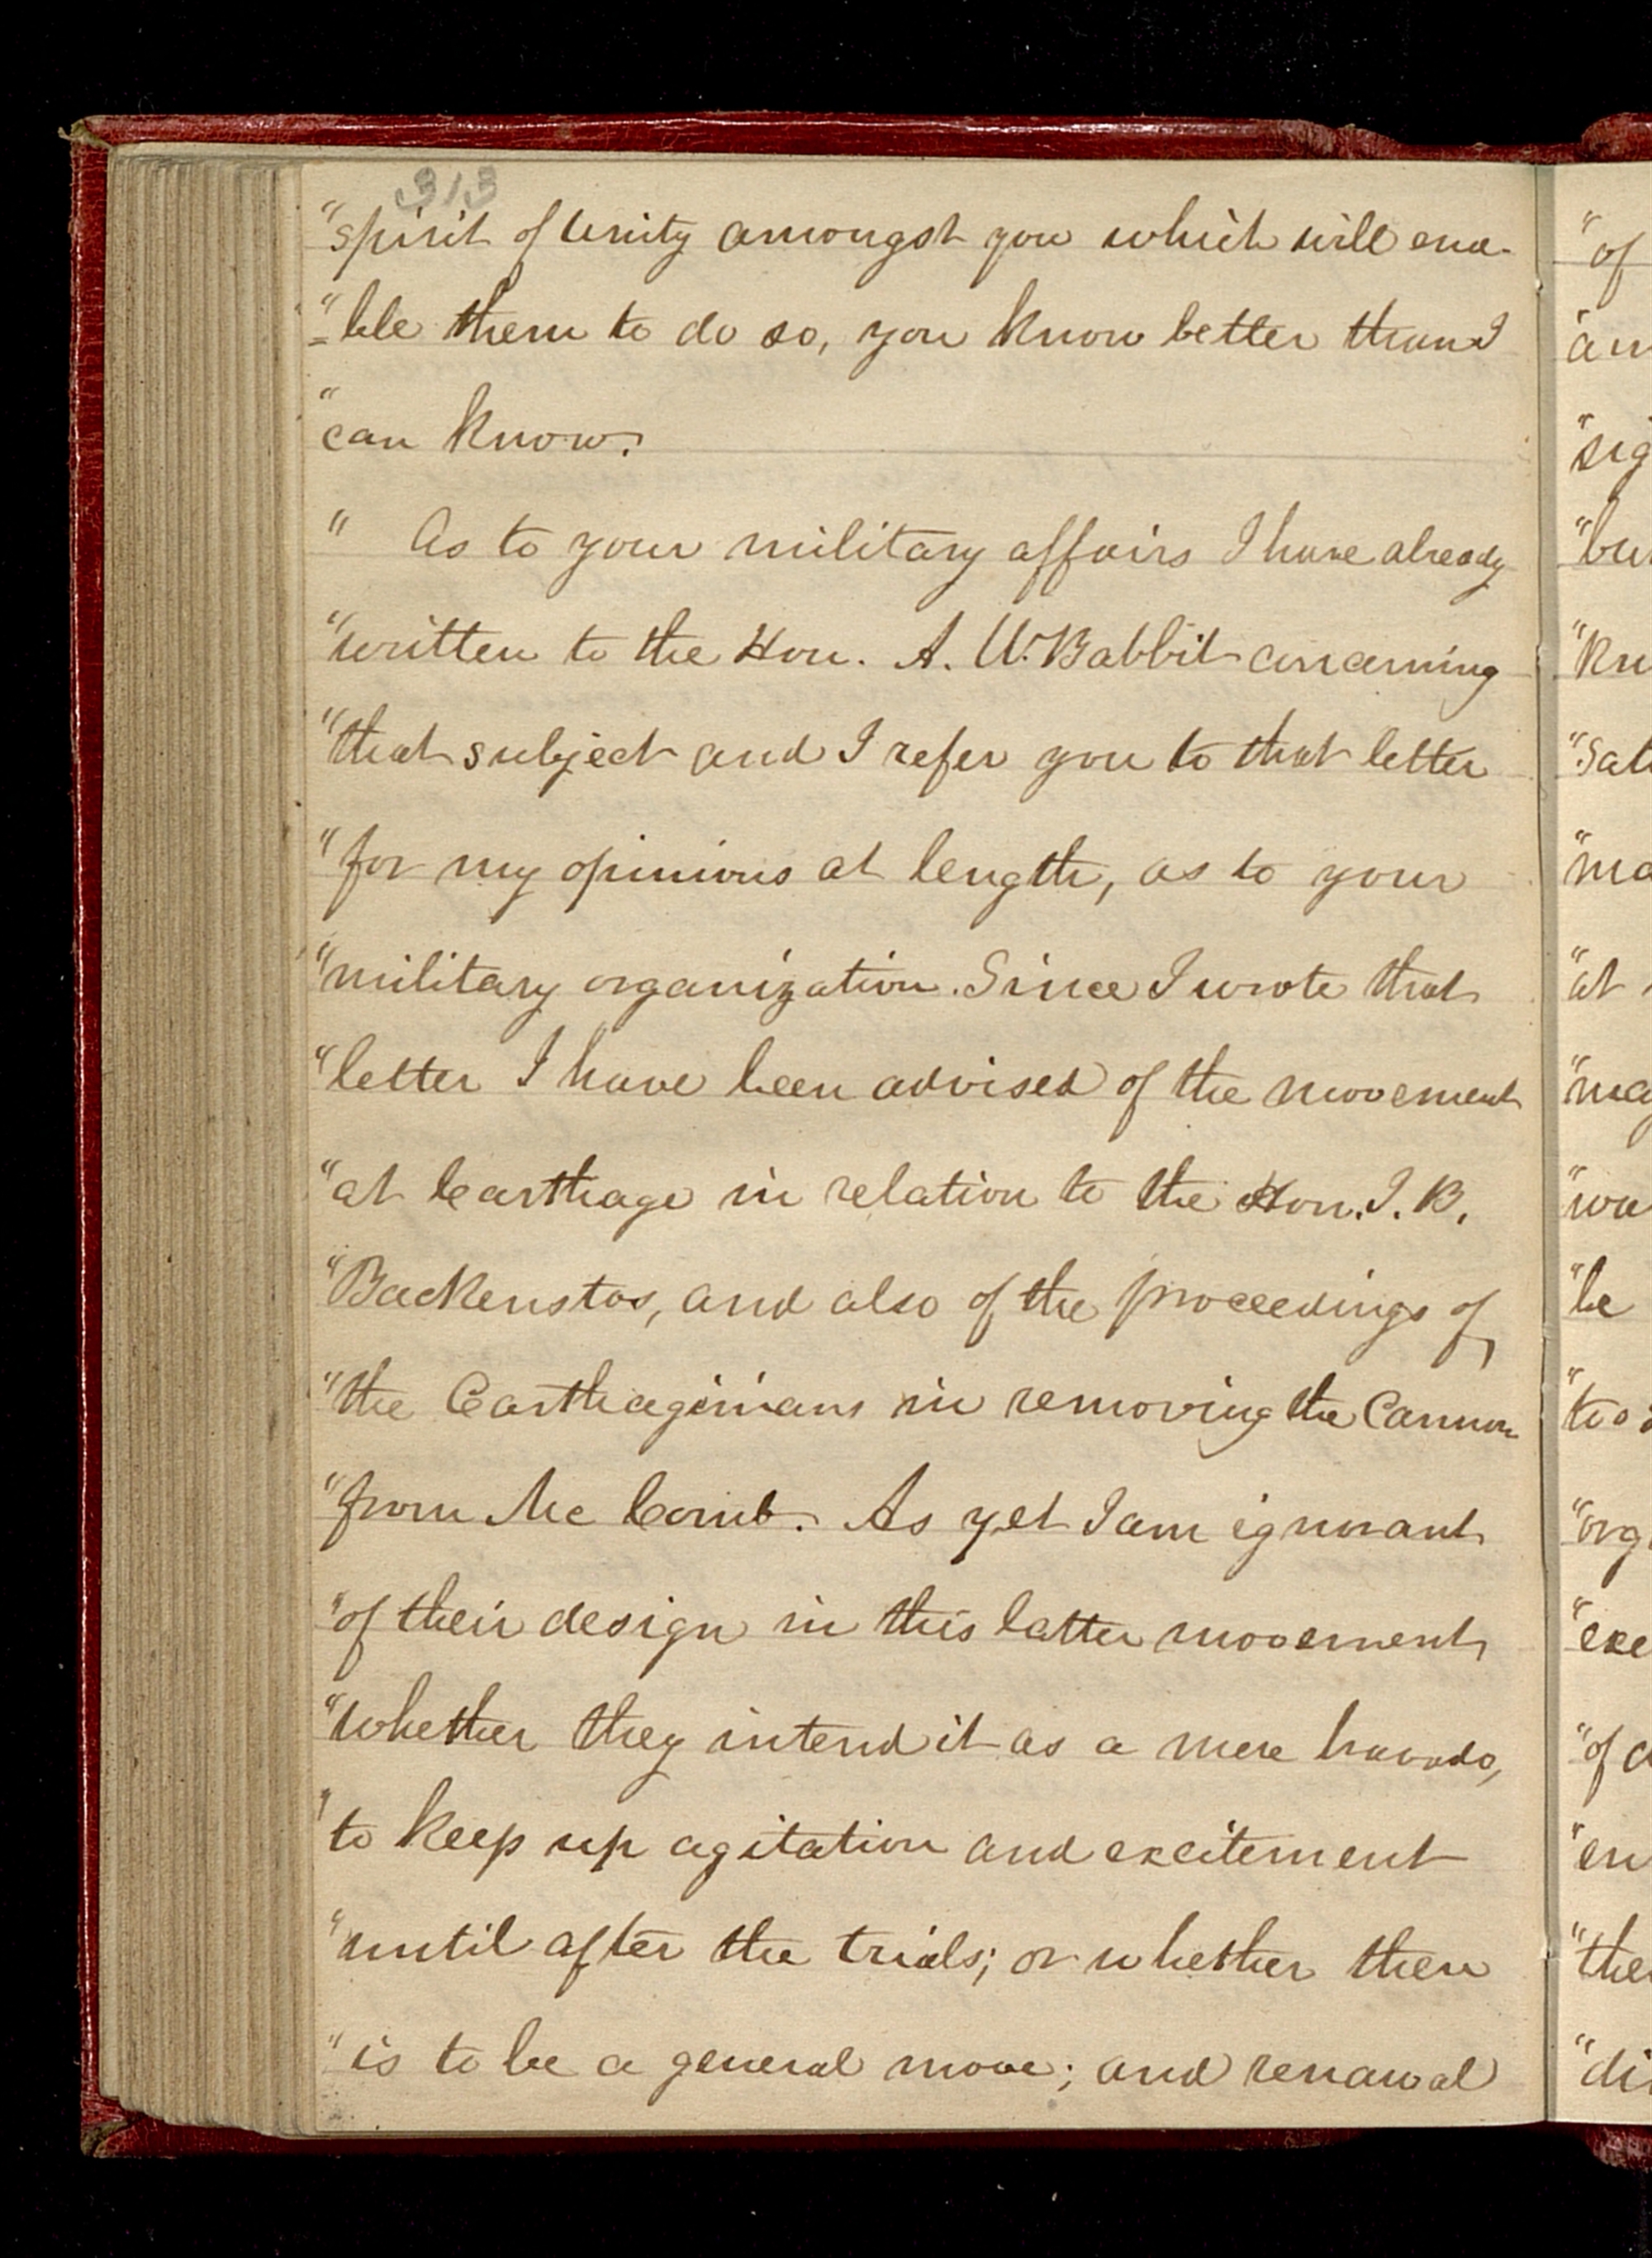 313
"spirit of Unity amongst you which will ena-
"=ble them to do so, you know better than I
"can know.
" As to your military affairs I have already
"written to the Hon. A. W. Babbit concerning
"that subject and I refer you to that letter
"for my opinions at length, as to your
"military organization. Since I wrote that
"letter I have been advised of the movement
"at Carthage in relation to the Hon. J. B.
"Backenstos, and also of the proceedings of
"the Carthaginians in removing the Cannon
"from Mc Comb. As yet I am ignorant
"of their design in this latter movement
"whether they intend it as a mere bravado,
"to keep up agitation and excitement
"until after the trials; or whether there
"is to be a general move; and renawal
"of
"sig
"at
"be
"too
"of
"en